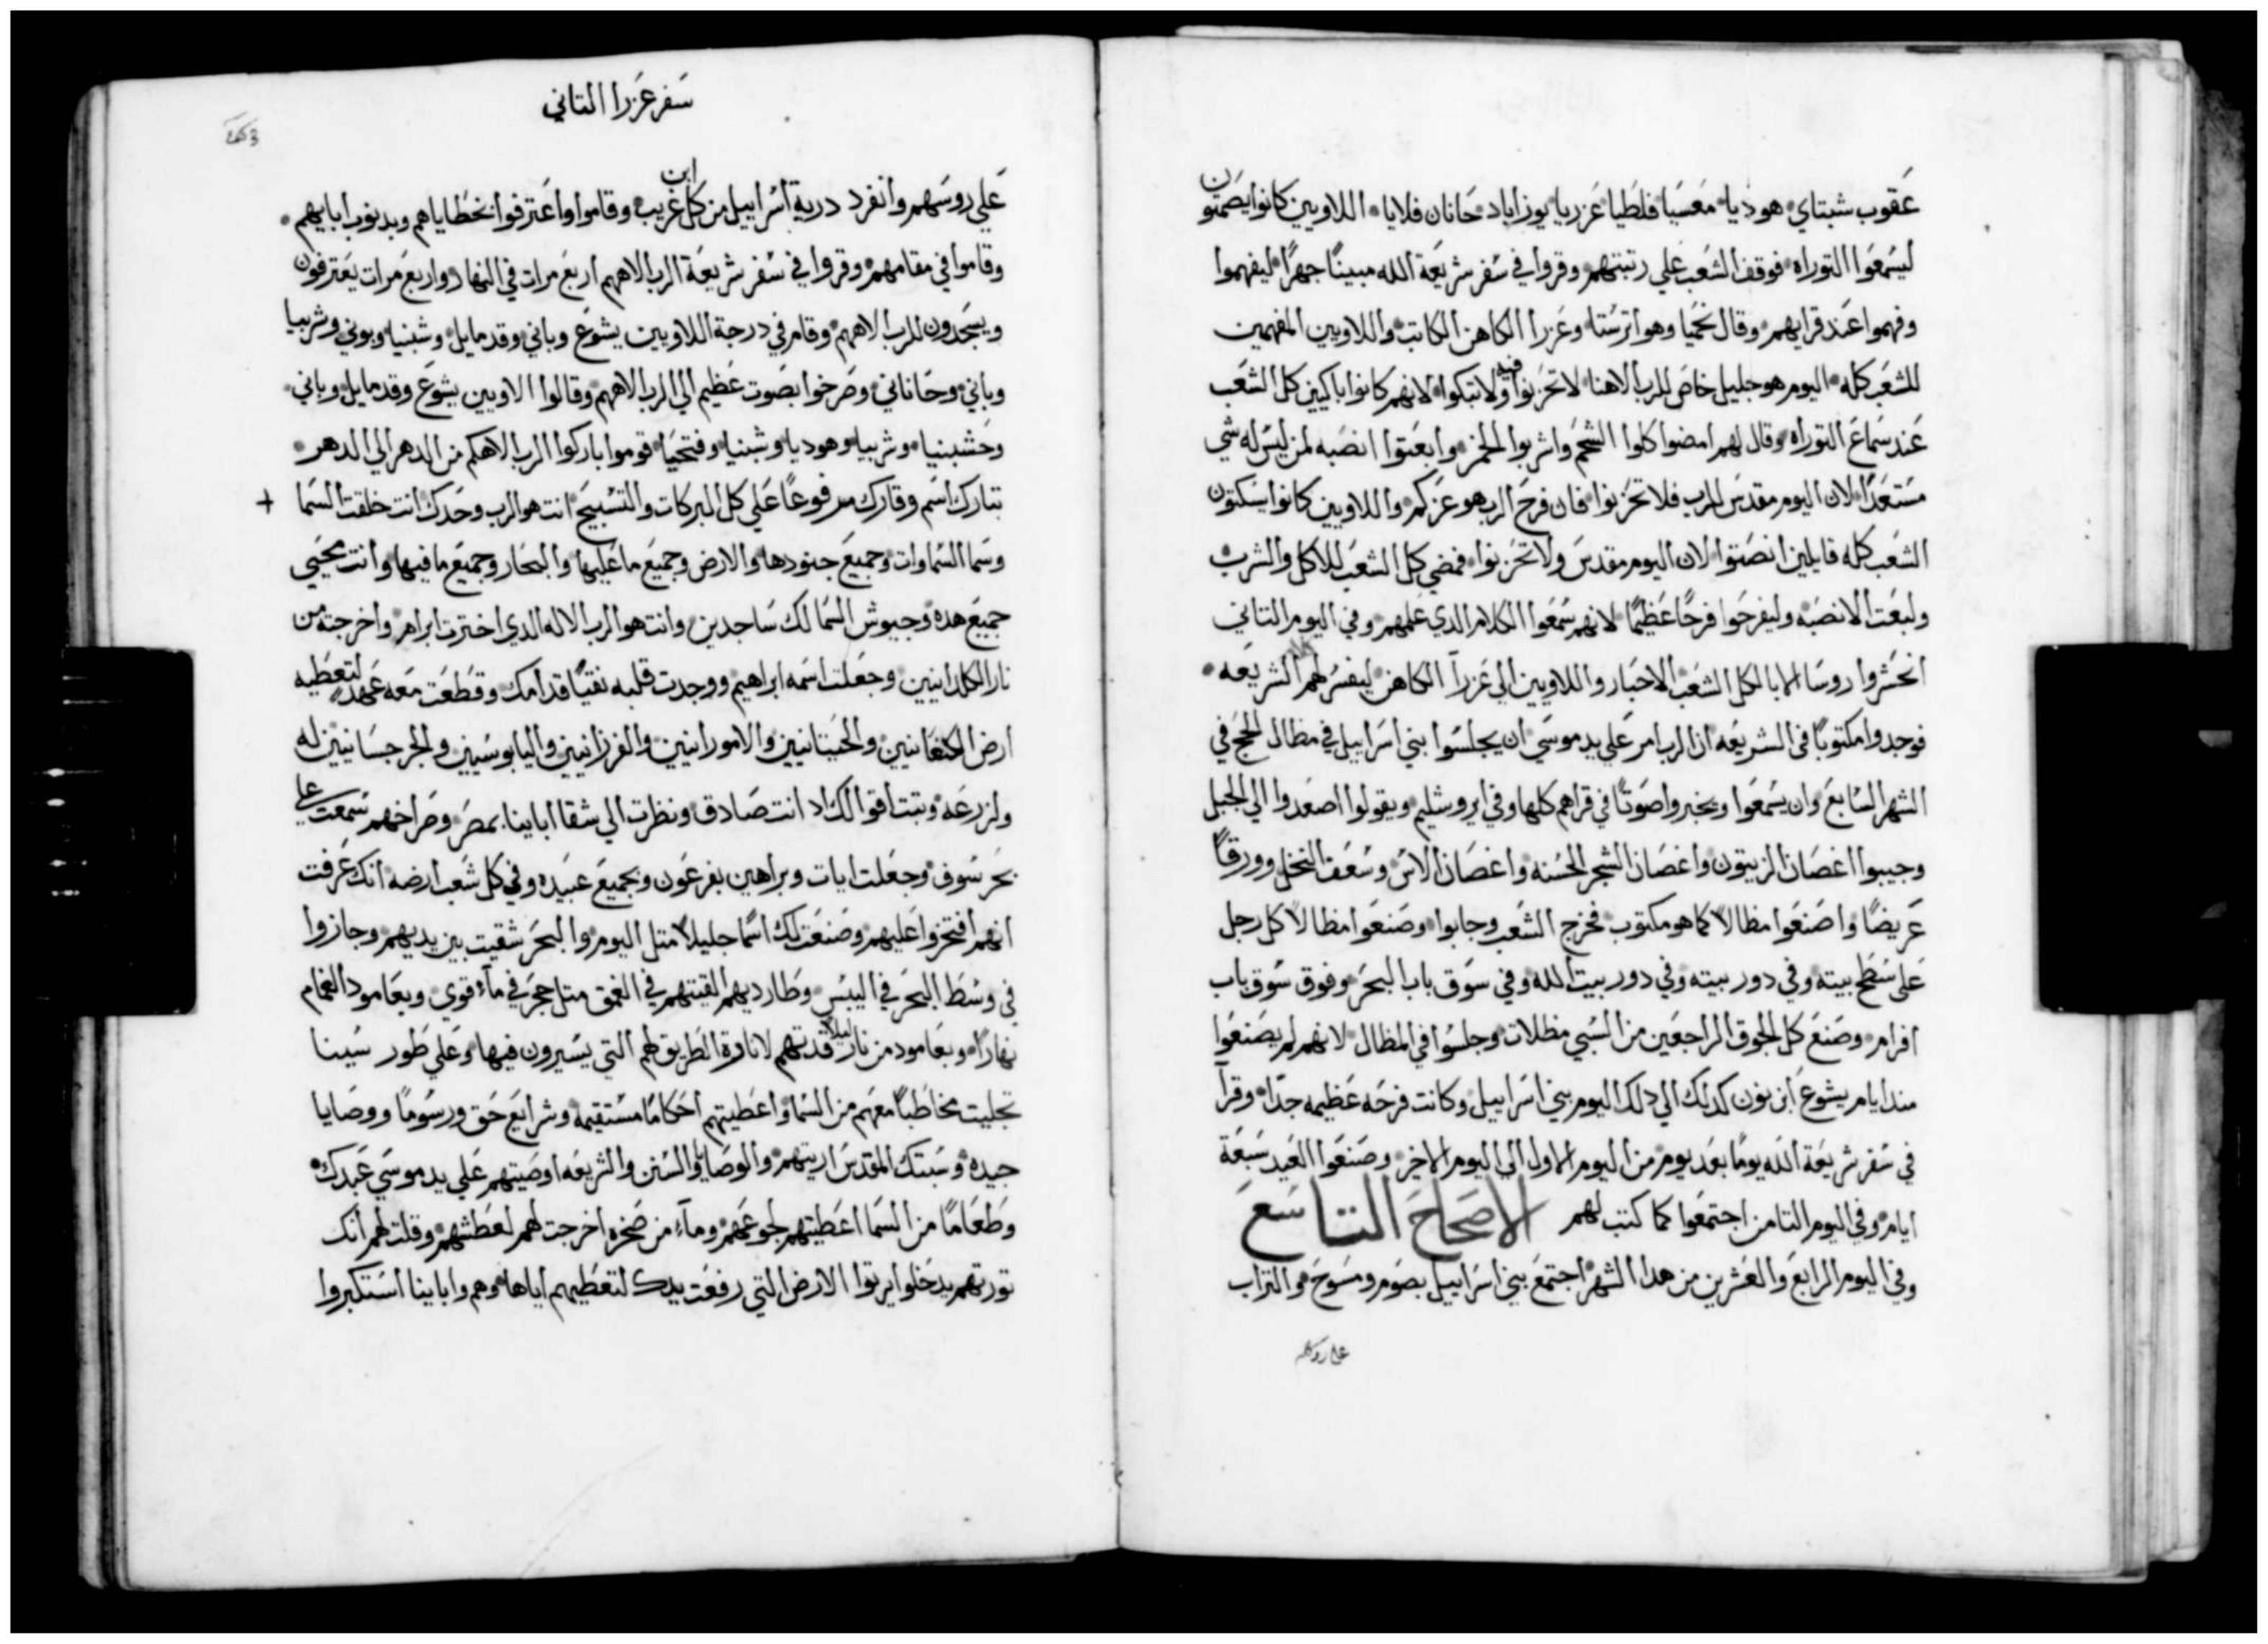 عَقوب شبتاي هوديا معَسيَا فلَطيا عَزريا يوزاباد حَانان فلايا اللاويين كانوا يصَمتون
ليسَمعَوا التوراه فوقف الشعَب عَلي رتبتهم وقروا في سَفر شريعَة الله مبينًا جهرًا ليفهموا
وفهموا عَند قرايهم وقال نحَميا وهو اترسَتا وعَزرا الكاهن الكاتب واللاويين المفهمين
للشعَب كله اليوم هو جليل خاص للرب الاهنا لا تحَزنوا فيه ولا تبكوا لانهم كانوا باكيين كل الشعَب
عَند سَماعَ التوراه وقال لهم امضوا كلوا الشحَم واشربوا الخمر وابعَتوا انصَبه لمن ليسَ له شي
مسَتعَدًا لان اليوم مقدسَ للرب فلا تحَزنوا فان فرحَ الرب هو عَزكم واللاويين كانوا يسَكتون
الشعَب كله قايلين انصَتوا لان اليوم مقدسَ ولا تحَزنوا فمضي كل الشعَب للاكل والشرب
ولبعَت الانصَبه وليفرحَوا فرحًا عَظيمًا لانهم سَمعَوا الكلام الدي عَلمهم وفي اليوم التاني
انحَشروا روسَا الابا لكل الشعَب الاحَبار واللاويين الي عَزرا الكاهن ليفسَر لهم الشريعَه
فوجدوا مكتوبًا في الشريعَه ان الرب امر عَلي يد موسَي ان يجلسَوا بني اسَراييل في مظال الحَج في
الشهر السَابعَ وان يسَمعَوا ويخبروا صَوتًا في قراهم كلها وفي ايروسَليم ويقولوا اصعَدوا الي الجبل
وجيبوا اغصَان الزيتون واغصَان الشجر الحسَنه واغصَان الاسَ وسَعَف النخل وورقًا
عَريضًا واصَنعَوا مظالاً كما هو مكتوب فخرج الشعَب وجابوا وصَنعَوا مظالاً كل رجل
عَلي سَطحَ بيته وفي دور بيته وفي دور بيت الله وفي سَوق باب البحَر وفوق سَوق باب
افرام وصَنعَ كل الجوق الراجعَين من السَبي مظلات وجلسَوا في المظال لانهم لم يصَنعَوا
مند ايام يشوعَ ابن نون كدلك الي دلك اليوم بني اسَراييل وكانت فرحَه عَظيمه جدًا وقرا
في سَفر شريعَة الله يومًا بعَد يوم من اليوم الاول الي اليوم الاخر وصَنعَوا العَيد سَبعَة
ايام وفي اليوم التامن اجتمعَوا كما كتب لهم الاصَحَاحَ التاسَعَ
وفي اليوم الرابعَ والعَشرين من هدا الشهر اجتمعَ بني اسَراييل بصَوم ومسَوحَ والتراب
سَفر عَزرا التاني
عَلي روسَهم وانفرد درية اسَراييل من كل ابن غريب وقاموا واعَترفوا بخطاياهم وبدنوب ابايهم
وقاموا في مقامهم وقروا في سَفر شريعَة الرب الاههم اربعَ مرات في النهار واربعَ مرات يعَترفون
ويسَجدون للرب الاههم وقام في درجة اللاويين يشوعَ وباني وقدمايل وشبنيا وبوني وشربيا
وباني وحَاناني وصَرخوا بصَوت عَظيم الي الرب الاههم وقالوا الاويين يشوعَ وقدمايل وباني
وحَشبنيا وشربيا وهوديا وشبنيا وفتحَيا قوموا باركوا الرب الاهكم من الدهر الي الدهر
تبارك اسَم وقارك مرفوعًا عَلي كل البركات والتسَبيحَ انت هو الرب وحَدك انت خلقت السَما
وسَما السَماوات وجميعَ جنودها والارض وجميعَ ما عَليها والبحَار وجميعَ ما فيها وانت محَيي
جميعَ هده وجيوش السَما لك سَاجدين وانت هو الرب الاله الدي اخترت ابرام واخرجته من
نار الكلدانيين وجعَلت اسَمه ابراهيم ووجدت قلبه نقيًا قدامك وقطَعَت معَه عَهد لتعَطيه
ارض الكنعَانيين والحَيتانيين والامورانيين والفرزانيين واليابوسَيين والجرجسَانيين له
ولزرعَه وتبت اقوالك اد انت صَادق ونظرت الي شقا ابايينا بمصَر وصَراخهم سَمعَت علي
بحَر سَوف وجعَلت ايات وبراهين بفرعَون وبجميعَ عَبيده وفي كل شعَب ارضه انك عَرفت
انهم افتخروا عَليهم وصَنعَت لك اسَمًا جليلاً متل اليوم والبحَر شقيت بين يديهم وجازوا
في وسَط البحَر في اليبسَ وطارديهم القيتهم في العَمق متل حَجر في مآء قوي وبعَامود الغمام
نهارًا وبعَامود من نار ليلاً قدتهم لانارة الطَريق لهم التي يسَيرون فيها وعَلي طَور سَينا
تجليت مخاطَبًا معَهم من السَما واعَطيتهم احَكامًا مسَتقيمه وشرايعَ حَق ورسَومًا ووصَايا
جيده وسَبتك المقدسَ اريتهم والوصَايا والسَنن والشريعَه اوصَيتهم عَلي يد موسَي عَبدك
وطَعَامًا من السَما اعَطيتهم لجوعَهم ومآء من صَخره اخرجت لهم لعَطَشهم وقلت لهم انك
تورتهم يدخلوا يرتوا الارض التي رفعَت يدك لتعَطَيهم اياها وهم وابايينا اسَتكبروا